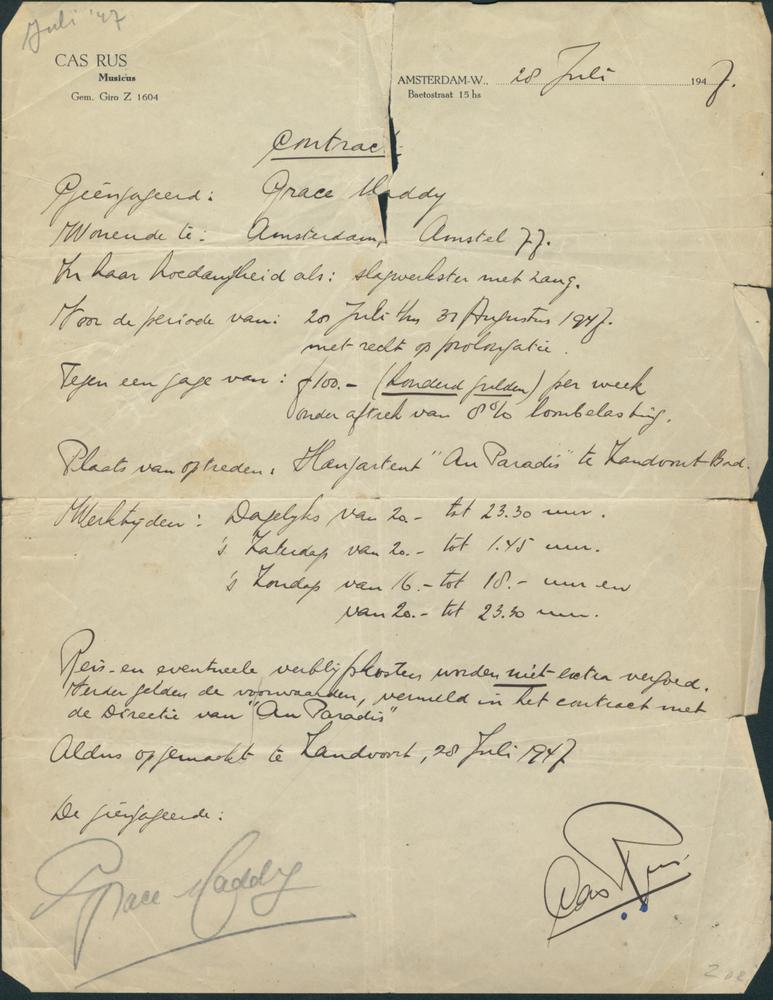 Juli '47
CAS RUS
Musicus
Gem. Giro Z 1604
AMSTERDAM-W., 28 Juli 1947.
Baetostraat 15 hs
Contract:
Geëngageerd: Grace Maddy
Wonende te: Amsterdam, Amstel 77.
In haar hoedanigheid als: slagwerkster met zang.
Voor de periode van: 28 Juli t/m 31 Augustus 1947.
met recht op prolongatie.
Tegen een gage van: f 100.- (honderd gulden) per week
onder aftrek van 8% loonbelasting.
Plaats van optreden: "Au Paradis" te Zandvoort-Bad.
Werktijden: Dagelijks van 20.- tot 23.30 uur.
's Zaterdags van 20.- tot 1.45 uur.
's Zondags van 16.- tot 18.- uur en
van 20.- tot 23.30 uur.
Reis- en eventueele verblijfkosten worden niet extra vergoed.
Verder gelden de voorwaarden, vermeld in het contract met
de Directie van "Au Paradis"
Aldus opgemaakt te Zandvoort, 28 Juli 1947
De geëngageerde:
Grace Maddy
Cas Rus